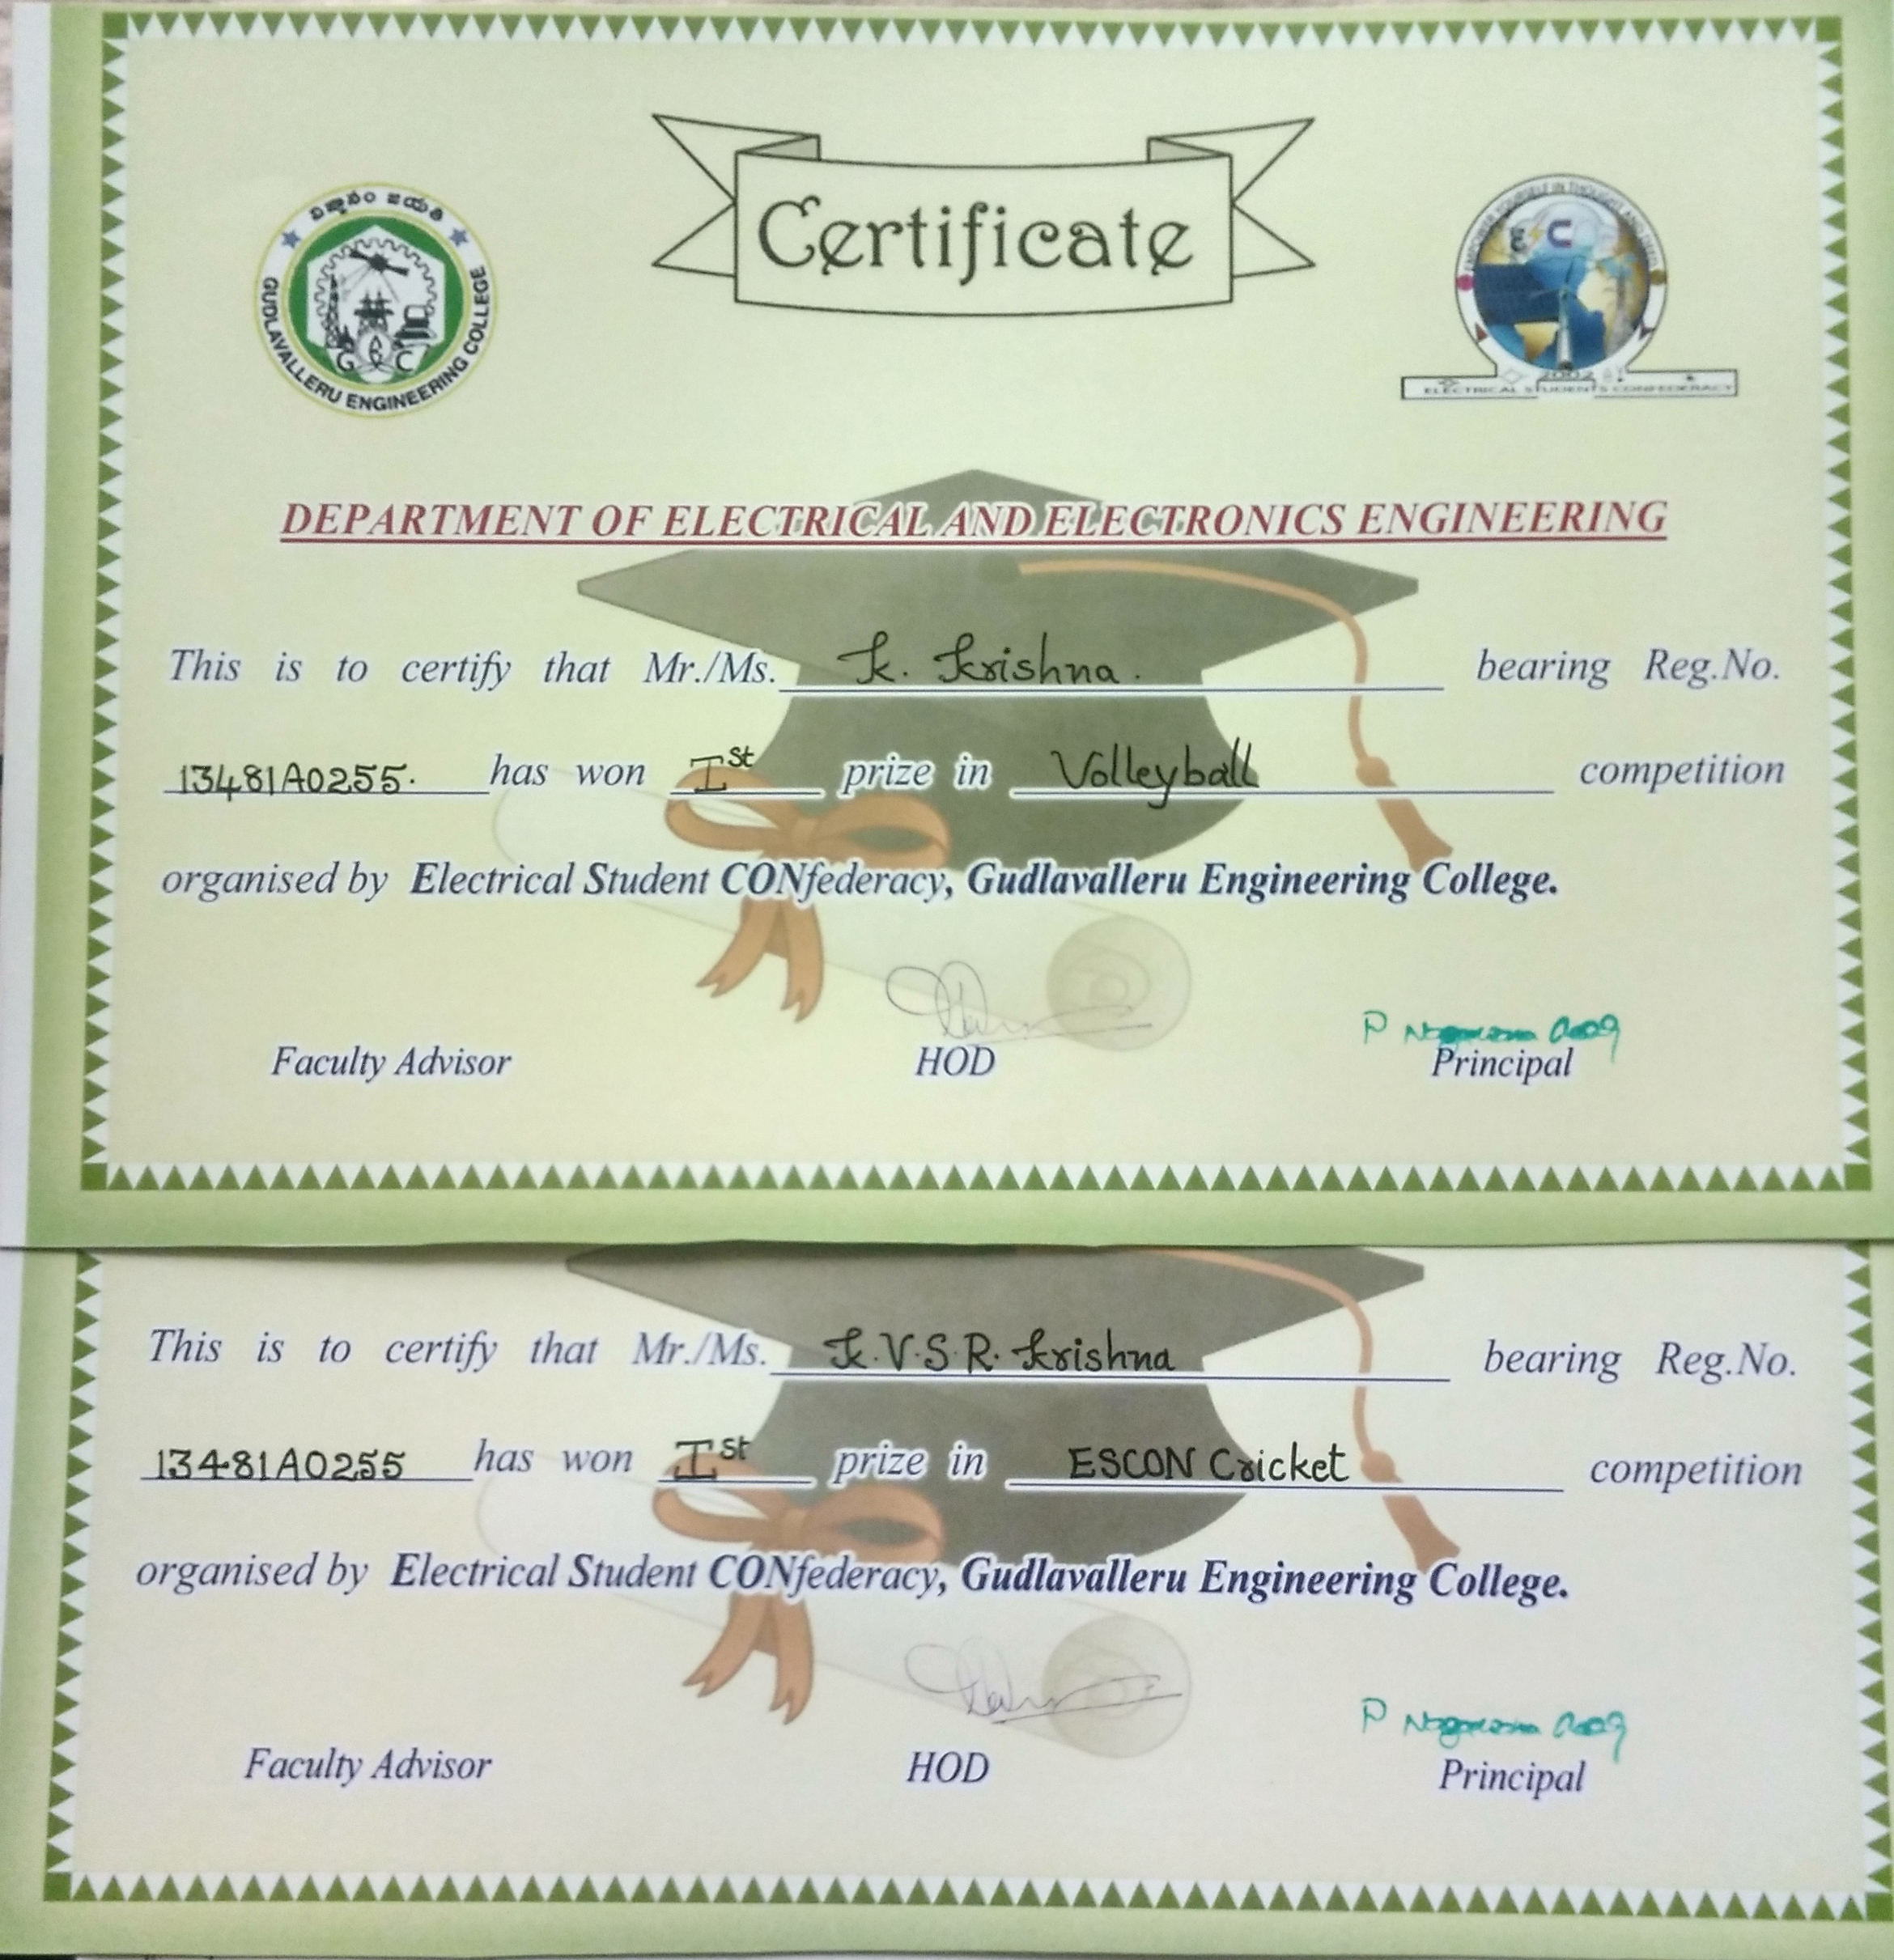 Certificate
విజ్ఞానం జయతి
GUDLAVALLERU ENGINEERING COLLEGE
G E C
2002
ELECTRICAL STUDENTS CONFEDERACY
DEPARTMENT OF ELECTRICAL AND ELECTRONICS ENGINEERING
This is to certify that Mr./Ms. K. Krishna. bearing Reg.No.
13481A0255. has won Ist prize in Volleyball competition
organised by Electrical Student CONfederacy, Gudlavalleru Engineering College.
Faculty Advisor HOD Principal
This is to certify that Mr./Ms. K.V.S.R. Krishna bearing Reg.No.
13481A0255 has won Ist prize in ESCON Cricket competition
organised by Electrical Student CONfederacy, Gudlavalleru Engineering College.
Faculty Advisor HOD Principal